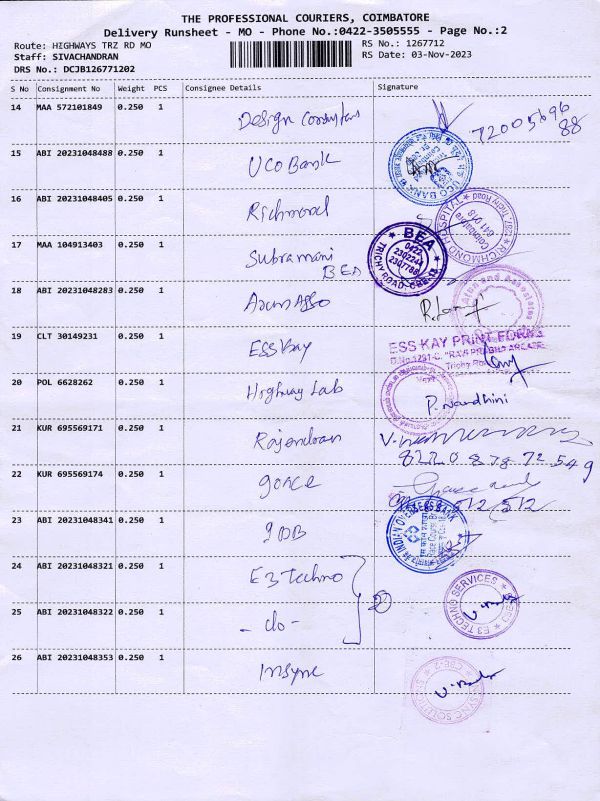 THE PROFESSIONAL COURIERS, COIMBATORE
Delivery Runsheet - MO - Phone No.:0422-3505555 - Page No.:2
Route: HIGHWAYS TRZ RD MO
RS No.: 1267712
Staff: SIVACHANDRAN
RS Date: 03-Nov-2023
DRS No.: DCJB126771202
S No Consignment No Weight PCS Consignee Details Signature
14 MAA 572101849 0.250 1 Design Consultans
72005696
88
15 ABI 20231048488 0.250 1 UCO Bank
UCO BANK
16 ABI 20231048405 0.250 1 Richmond
RICHMOND HOSPITAL
Trichy Road
Coimbatore
641 018
17 MAA 104913403 0.250 1 Subramani
BEA
BEA
0422
TRICHY ROAD, CBE-18
18 ABI 20231048283 0.250 1 Arun Asso
Arun and Associates
19 CLT 30149231 0.250 1 ESS Kay
ESS KAY PRINT FORMS
Trichy Road
20 POL 6628262 0.250 1 Highway Lab
P. Nandhini
21 KUR 695569171 0.250 1 Rajendran
8220 878 72549
22 KUR 695569174 0.250 1 grace
512/512
23 ABI 20231048341 0.250 1 IOB
INDIAN OVERSEAS BANK
24 ABI 20231048321 0.250 1 E3 Techno
2
E3 TECHNO SERVICES
25 ABI 20231048322 0.250 1 - do -
26 ABI 20231048353 0.250 1 Insync